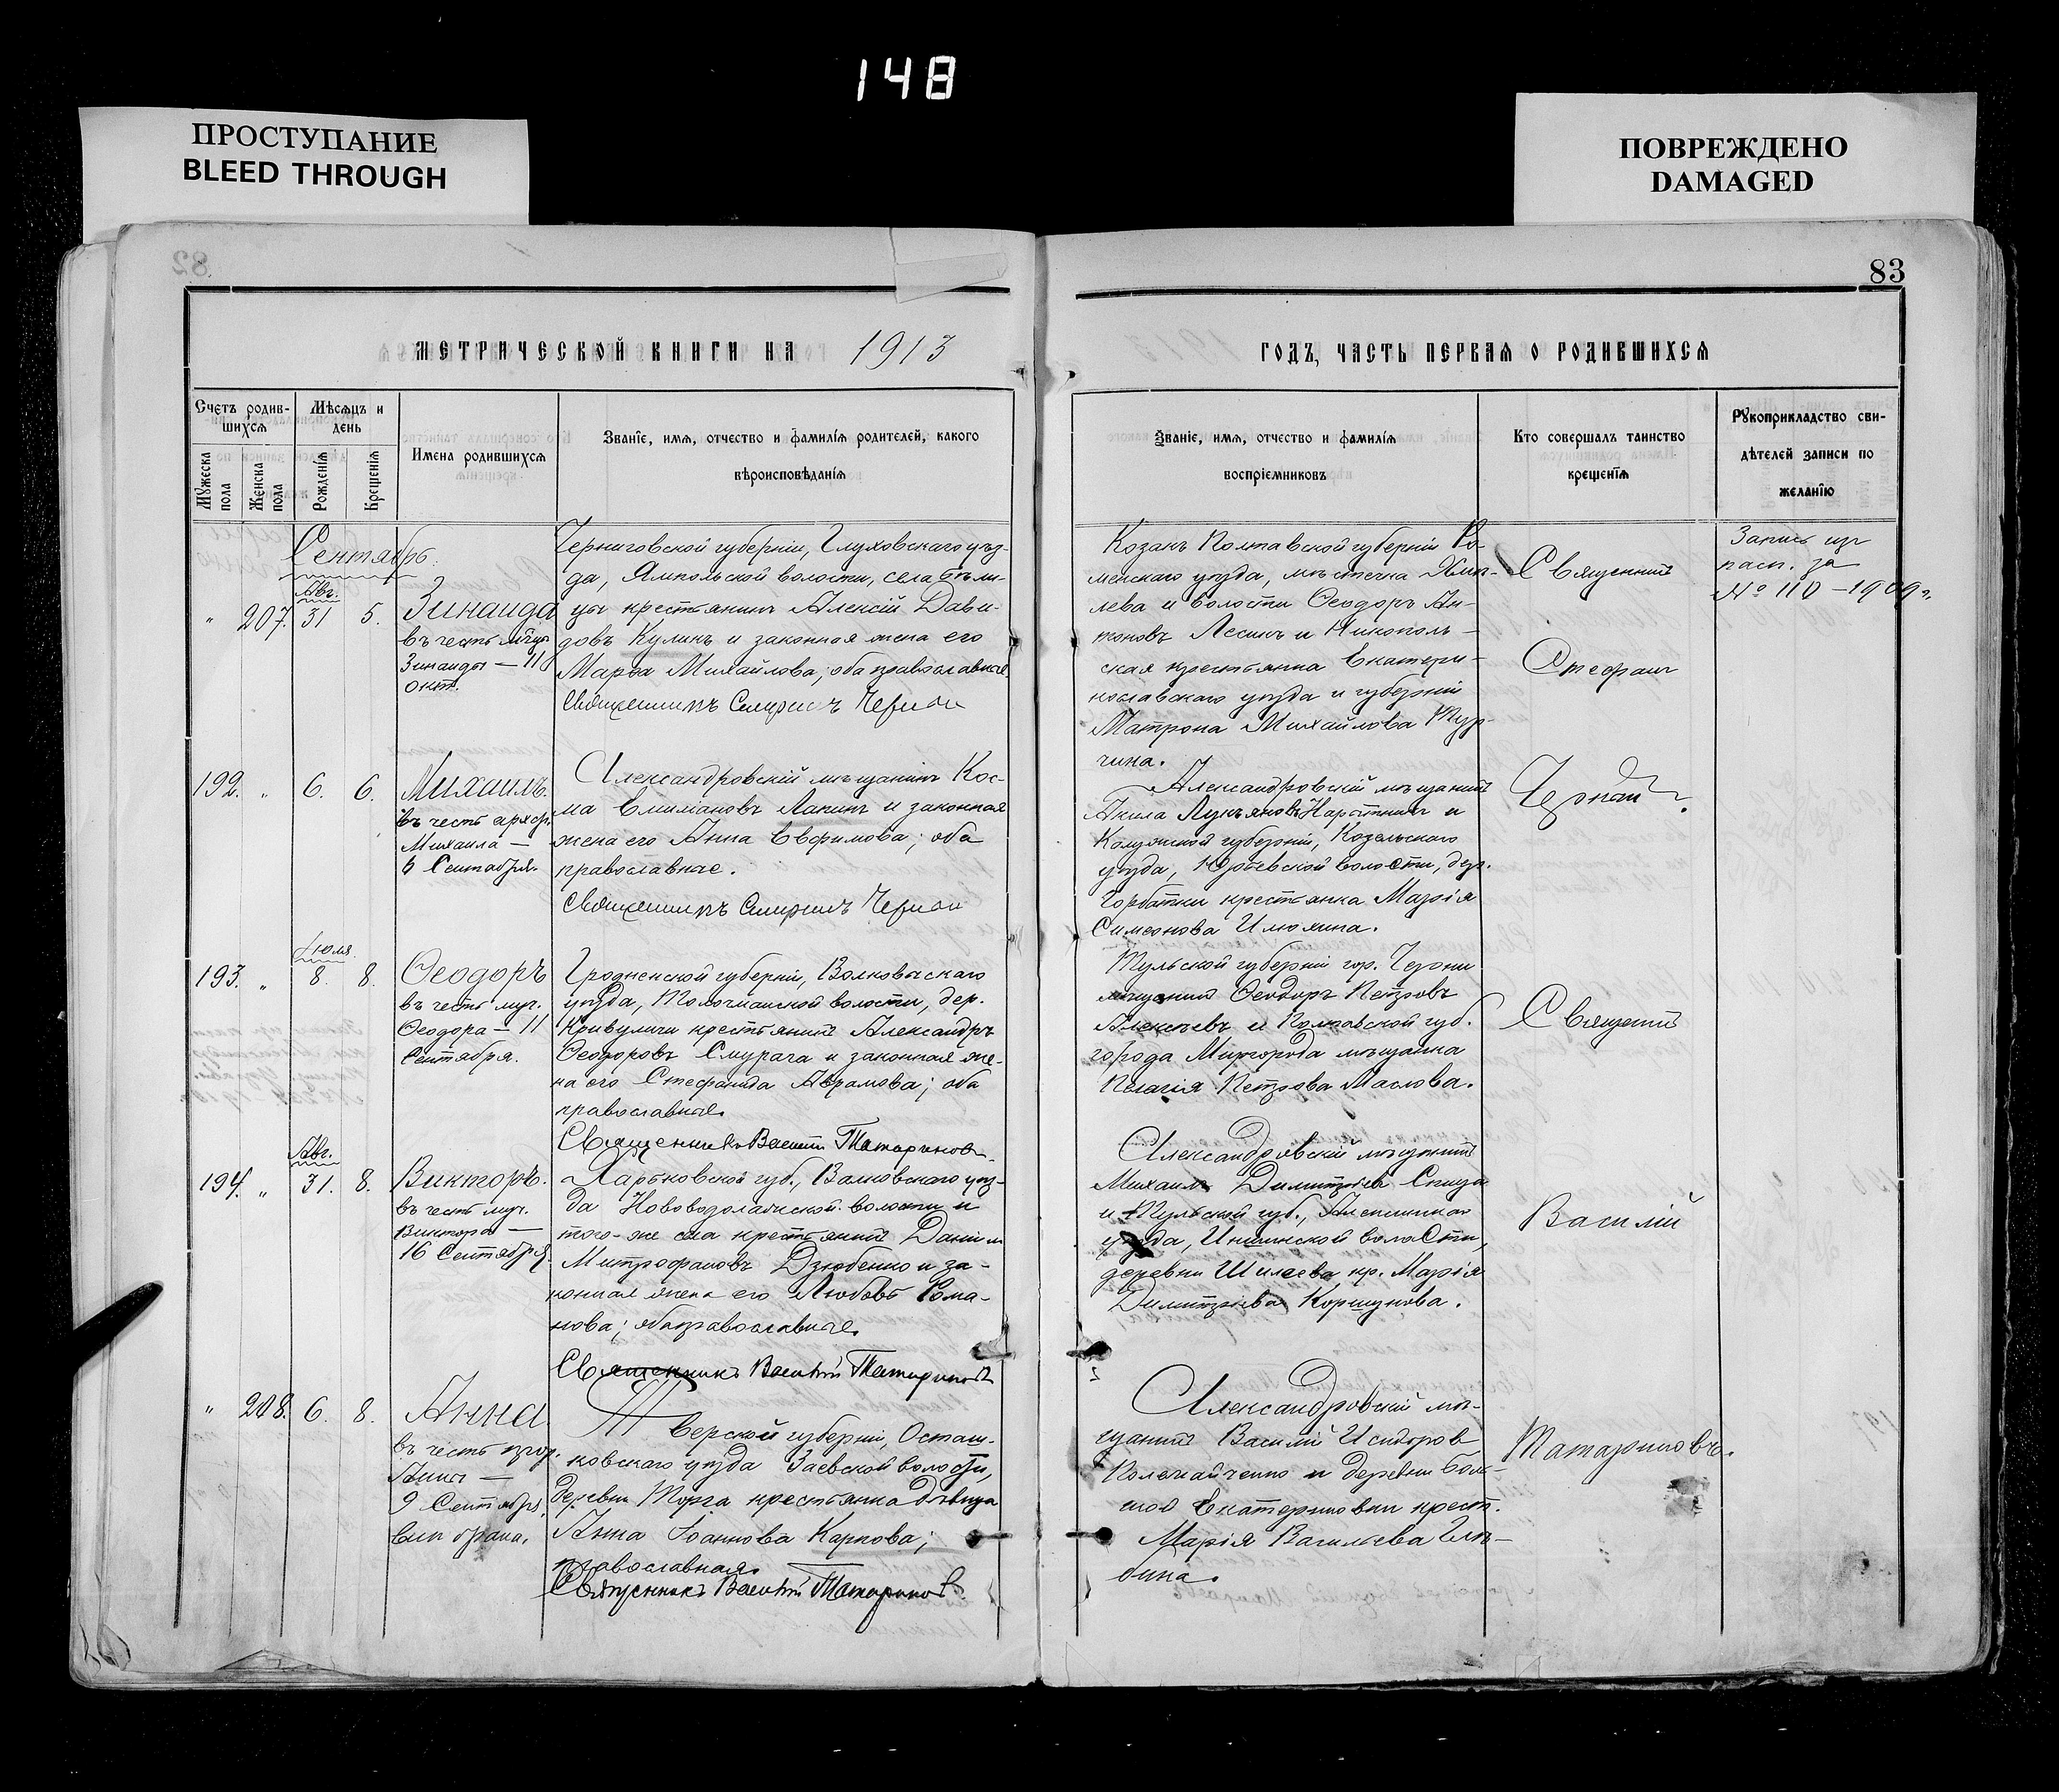 148
ПРОСТУПАНИЕ
BLEED THROUGH
ПОВРЕЖДЕНО
DAMAGED
83
МЕТРИЧЕСКОЙ КНИГИ НА 1913
ГОДЪ, ЧАСТЬ ПЕРВАЯ О РОДИВШИХСЯ
Счетъ родив-
шихся
Мѣсяцъ и
день
Мужеска
пола
Женска
пола
Рожденія
Крещенія
Имена родившихся
Званіе, имя, отчество и фамилія родителей, какого
вѣроисповѣданія
Званіе, имя, отчество и фамилія
воспріемниковъ
Кто совершалъ таинство
крещенія
Рукоприкладство сви-
дѣтелей записи по
желанію
Сентябрь.
Авг.
" 207. 31 5.
Зинаида
въ честь мчцы
Зинаиды — 11
окт.
Черниговской губерніи, Глуховскаго уѣз-
да, Ямпольской волости, села Бѣли-
цы крестьянинъ Алексій Дави-
довъ Кулинъ и законная жена его
Марѳа Михайлова; оба православные
Священникъ Чернай
Козакъ Полтавской губерніи Ро-
менскаго уѣзда, мѣстечка Хмѣ-
лева и волости Ѳеодоръ Ан-
тоновъ Лесикъ и Никополь-
ская крестьянка Екатери-
нославскаго уѣзда и губерніи
Матрона Михайлова
чина.
Священникъ
Стефанъ
Чернай
Запись изъ
пасп. за
№ 110 — 1909 г.
192. " 6. 6.
Михаилъ.
въ честь архср.
Михаила —
6 Сентября.
Александровскій мѣщанинъ Кос-
ма Емиліановъ Лапинъ и законная
жена его Анна Евфимова; оба
православные.
Священникъ Чернай
Александровскій мѣщанинъ
Акила Лукьяновъ и
Калужской губерніи, Козельскаго
уѣзда, Юрьевской волости, дер.
Горбатки крестьянка Марія
Симеонова Илюхина.
Іюля.
193. " 8. 8.
Ѳеодоръ
въ честь муч.
Ѳеодора — 11
Сентября.
Гродненской губерніи, Волковыскаго
уѣзда, волости, дер.
Кривуличи крестьянинъ Александръ
Ѳеодоровъ Смурага и законная же-
на его Стефанида Аврамова; оба
православные.
Священникъ Василій Татариновъ.
Тульской губерніи гор. Черни
мѣщанинъ Ѳеодоръ Петровъ
Алексѣевъ и Полтавской губ.
города Миргорода мѣщанка
Пелагія Петрова Маслова.
Священникъ
Василій
Татариновъ.
Авг.
194. " 31. 8.
Викторъ.
въ честь муч.
Виктора —
16 Сентября.
Харьковской губ., Валковскаго уѣз-
да Нововодолажской волости и
того-же села крестьянинъ Даніилъ
Митрофановъ Дзюбенко и за-
конная жена его Любовь Рома-
нова; оба православные.
Священникъ Василій Татариновъ
Александровскій мѣщанинъ
Михаилъ Димитріевъ Спица
и Тульской губ., Алексинскаго
уѣзда, волости,
деревни Шилеева кр. Марія
Димитріева Коршунова.
" 208. 6. 8.
Анна
въ честь прав.
Анны —
9 Сентября.
внѣ брака.
Тверской губерніи, Осташ-
ковскаго уѣзда Заевской волости,
деревни Торга крестьянка дѣвица
Анна Іоаннова Карпова;
православная.
Священникъ Василій Татариновъ.
Александровскій мѣ-
щанинъ Василій Исидоровъ
и деревни Боль-
шой Екатериновки крест.
Марія Васильева Глѣ-
бина.